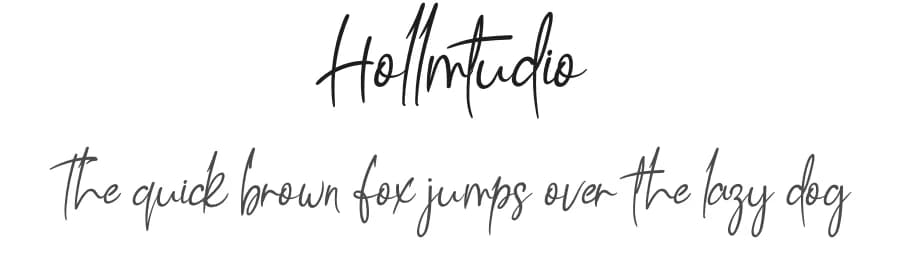 Hollmtudio
The quick brown fox jumps over the lazy dog